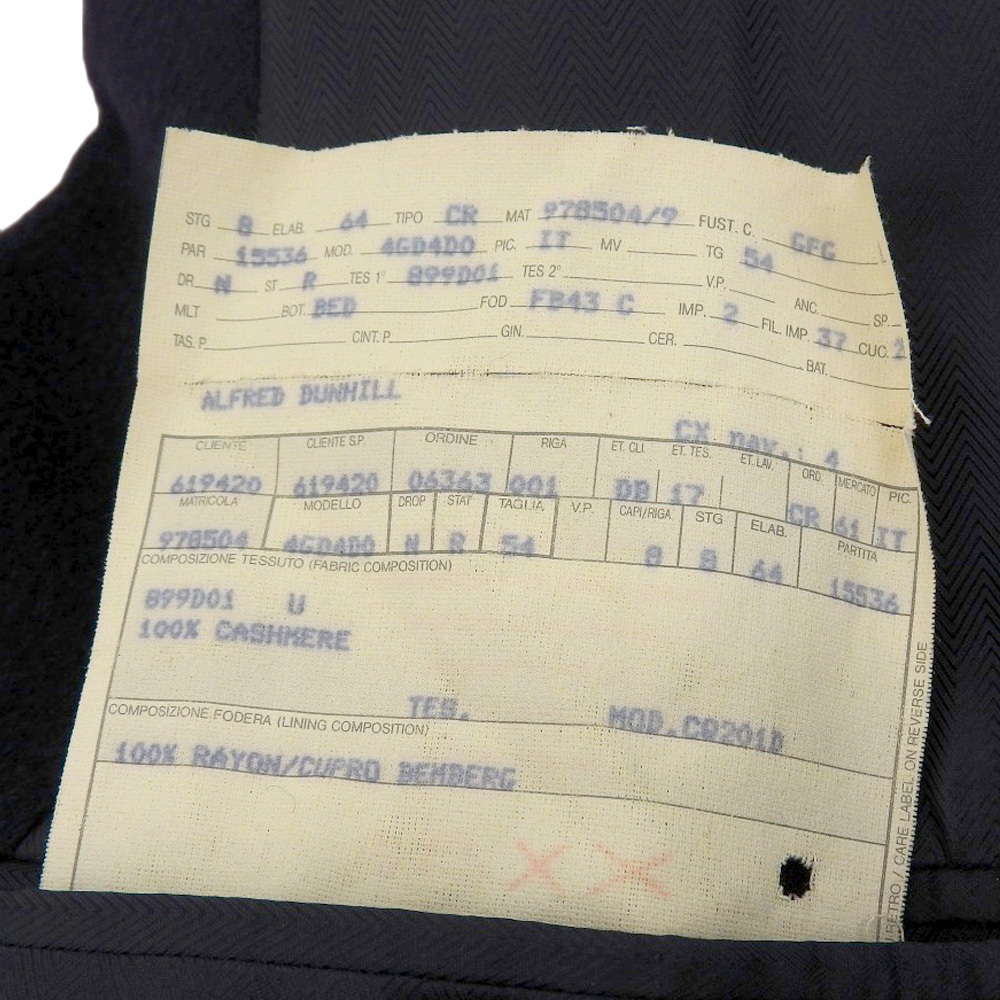 STG 8 ELAB. 64 TIPO CR MAT 978504/9 FUST. C. GFG
PAR 15536 MOD. 4GD4D0 PIC. IT MV TG 54
DR N ST R TES 1° 899D01 TES 2° V.P. ANC. SP.
MLT BOT. BED FOD FB43 C IMP. 2 FIL. IMP. 37 CUC.
TAS. P. CINT. P. GIN. CER. BAT.
ALFRED DUNHILL
CX nav.: 4
CLIENTE CLIENTE S.P. ORDINE RIGA ET. CLI ET. TES. ET. LAV. ORD. MERCATO PIC.
619420 619420 06363 001 DB 17 CR 61 IT
MATRICOLA MODELLO DROP STAT TAGLIA V.P. CAPI/RIGA STG ELAB. PARTITA
978504 4GD4D0 N R 54 8 8 64 15536
COMPOSIZIONE TESSUTO (FABRIC COMPOSITION)
899D01 U
100% CASHMERE
TES. MOD.
COMPOSIZIONE FODERA (LINING COMPOSITION)
100% RAYON/CUPRO BEMBERG
XX
RETRO / CARE LABEL ON REVERSE SIDE